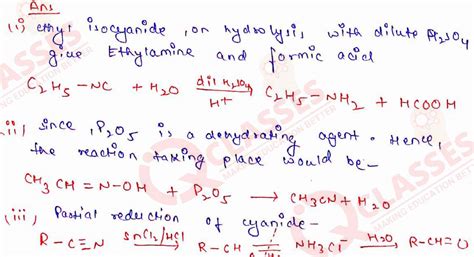 Ans
(i) ethyl isocyanide, on hydrolysis with dilute H₂SO₄
give Ethylamine and formic acid
C₂H₅-NC + H₂O dil H₂SO₄ → H⁺ C₂H₅-NH₂ + HCOOH
(ii) since, P₂O₅ is a dehydrating agent. Hence,
the reaction taking place would be-
CH₃CH=N-OH + P₂O₅ → CH₃CN + H₂O
(iii) Partial reduction of cyanide-
R-C≡N SnCl₂/HCl → R-CH NH₃Cl⁻ H₂O → R-CH=O
CLASSES
MAKING EDUCATION BETTER
CLASSES
MAKING EDUCATION BETTER